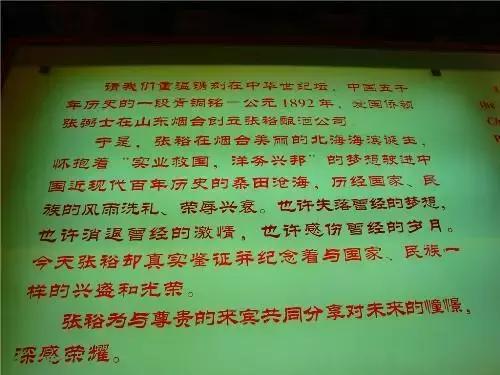 请我们重温镌刻在中华世纪坛，中国五千
年历史的一段青铜铭—公元1892年，爱国侨领
张弼士在山东烟台创立张裕酿酒公司。
于是，张裕在烟台美丽的北海海滨诞生，
怀抱着“实业救国，洋务兴邦”的梦想驶进中
国近现代百年历史的桑田沧海，历经国家、民
族的风雨洗礼、荣辱兴衰。也许失落曾经的梦想，
也许消退曾经的激情，也许感伤曾经的岁月。
今天张裕却真实鉴证并纪念着与国家、民族一
样的兴盛和光荣。
张裕为与尊贵的来宾共同分享对未来的憧憬，
深感荣耀。